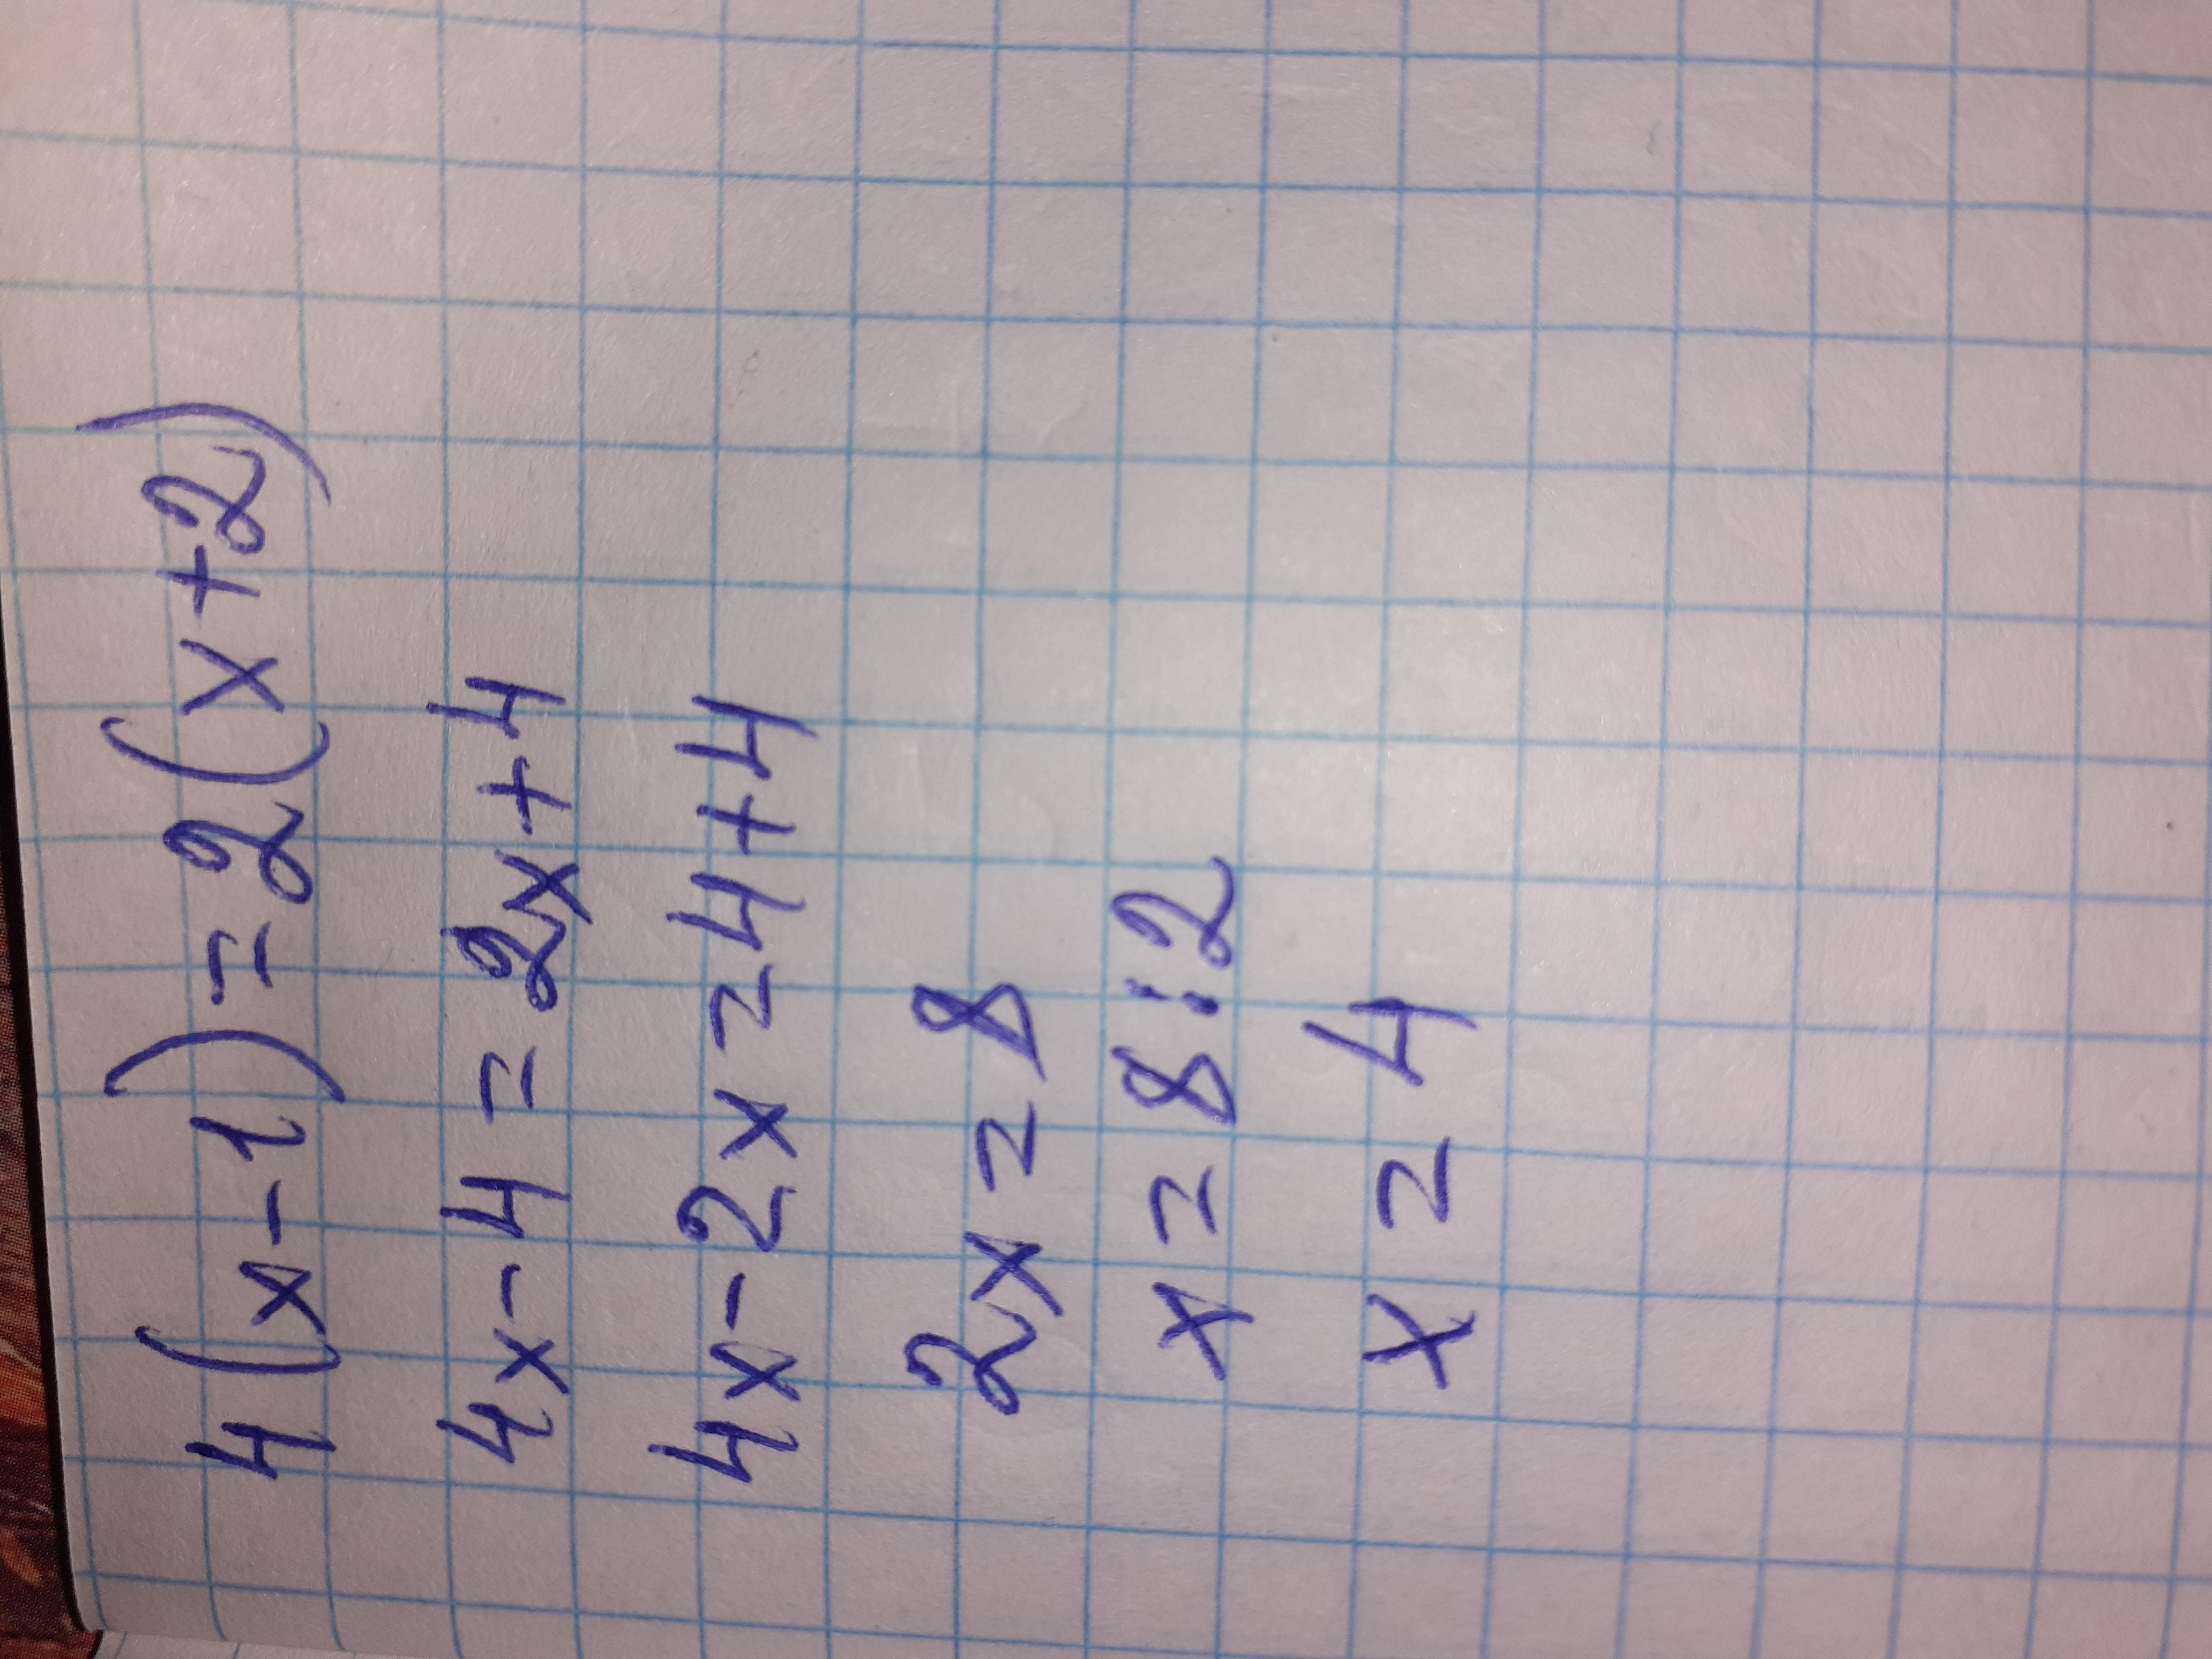 4(x-1)=2(x+2)
4x-4=2x+4
4x-2x=4+4
2x=8
x=8:2
x=4